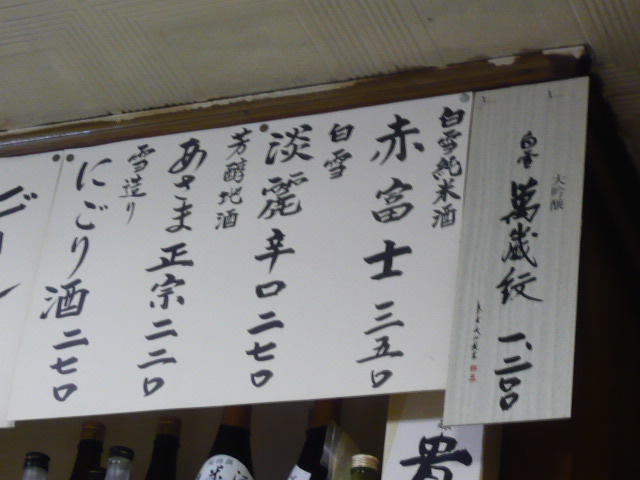 大吟醸
白雪 萬歳紋 一、二〇〇
白雪純米酒
赤富士 三五〇
白雪
淡麗辛口 二七〇
芳醇地酒
あさま正宗 二二〇
雪造り
にごり酒 二七〇
貴